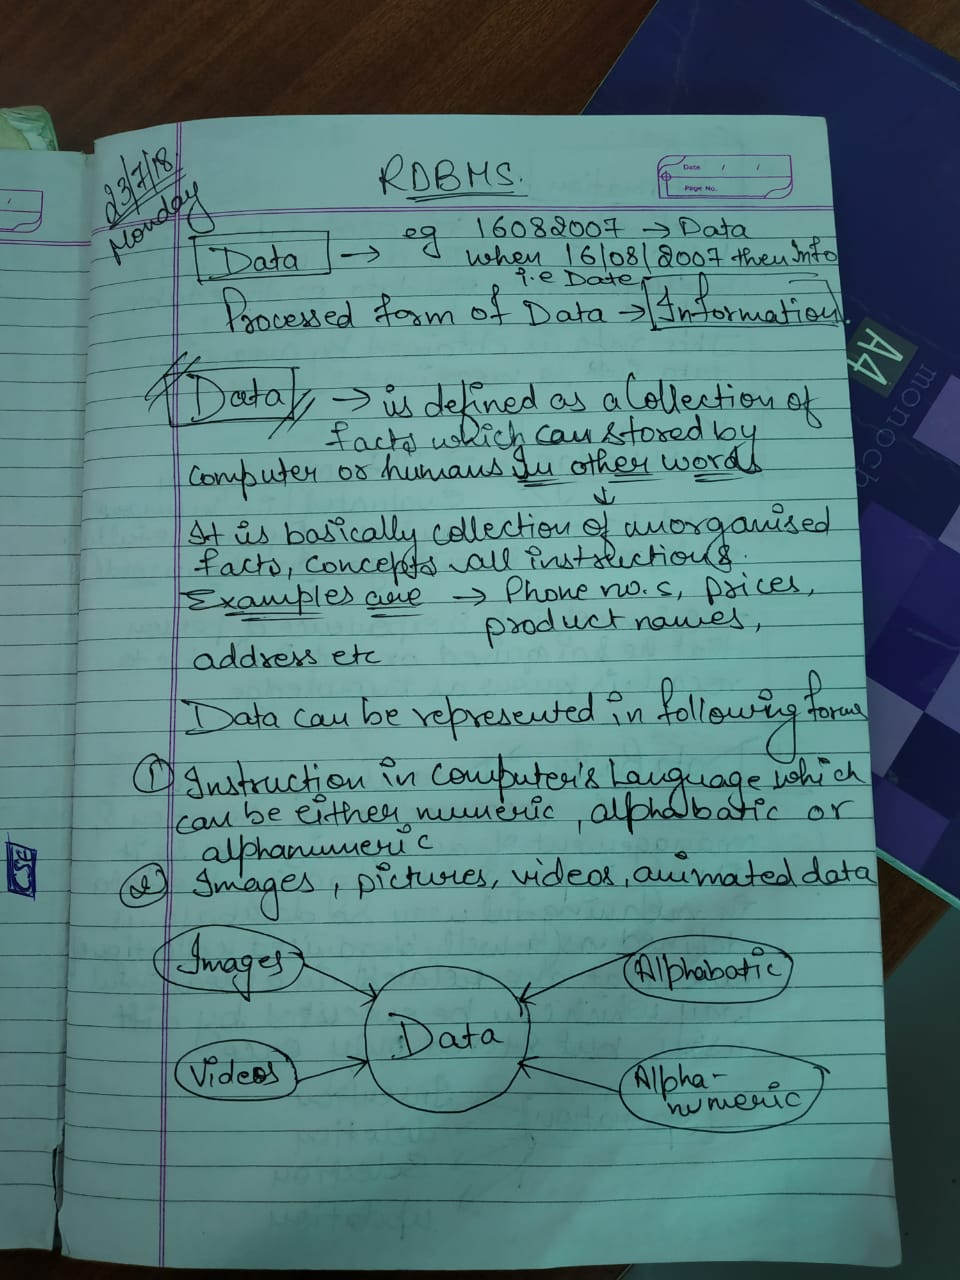 23/7/18.
Monday
RDBMS.
Date / /
Page No.
Data → eg 16082007 → Data
when 16/08/2007 then Info
i.e Date
Processed form of Data → Information.
Data → is defined as a Collection of
facts which can stored by
computer or humans In other words
↓
It is basically collection of unorganised
facts, concepts all instructions.
Examples are → Phone no.s, prices,
product names,
address etc
Data can be represented in following forms
1) Instruction in Computer's Language which
can be either numeric, alphabatic or
alphanumeric
2) Images, pictures, videos, animated data
Images
Alphabatic
Data
Videos
Alpha-
numeric
CSE
A4
monoch